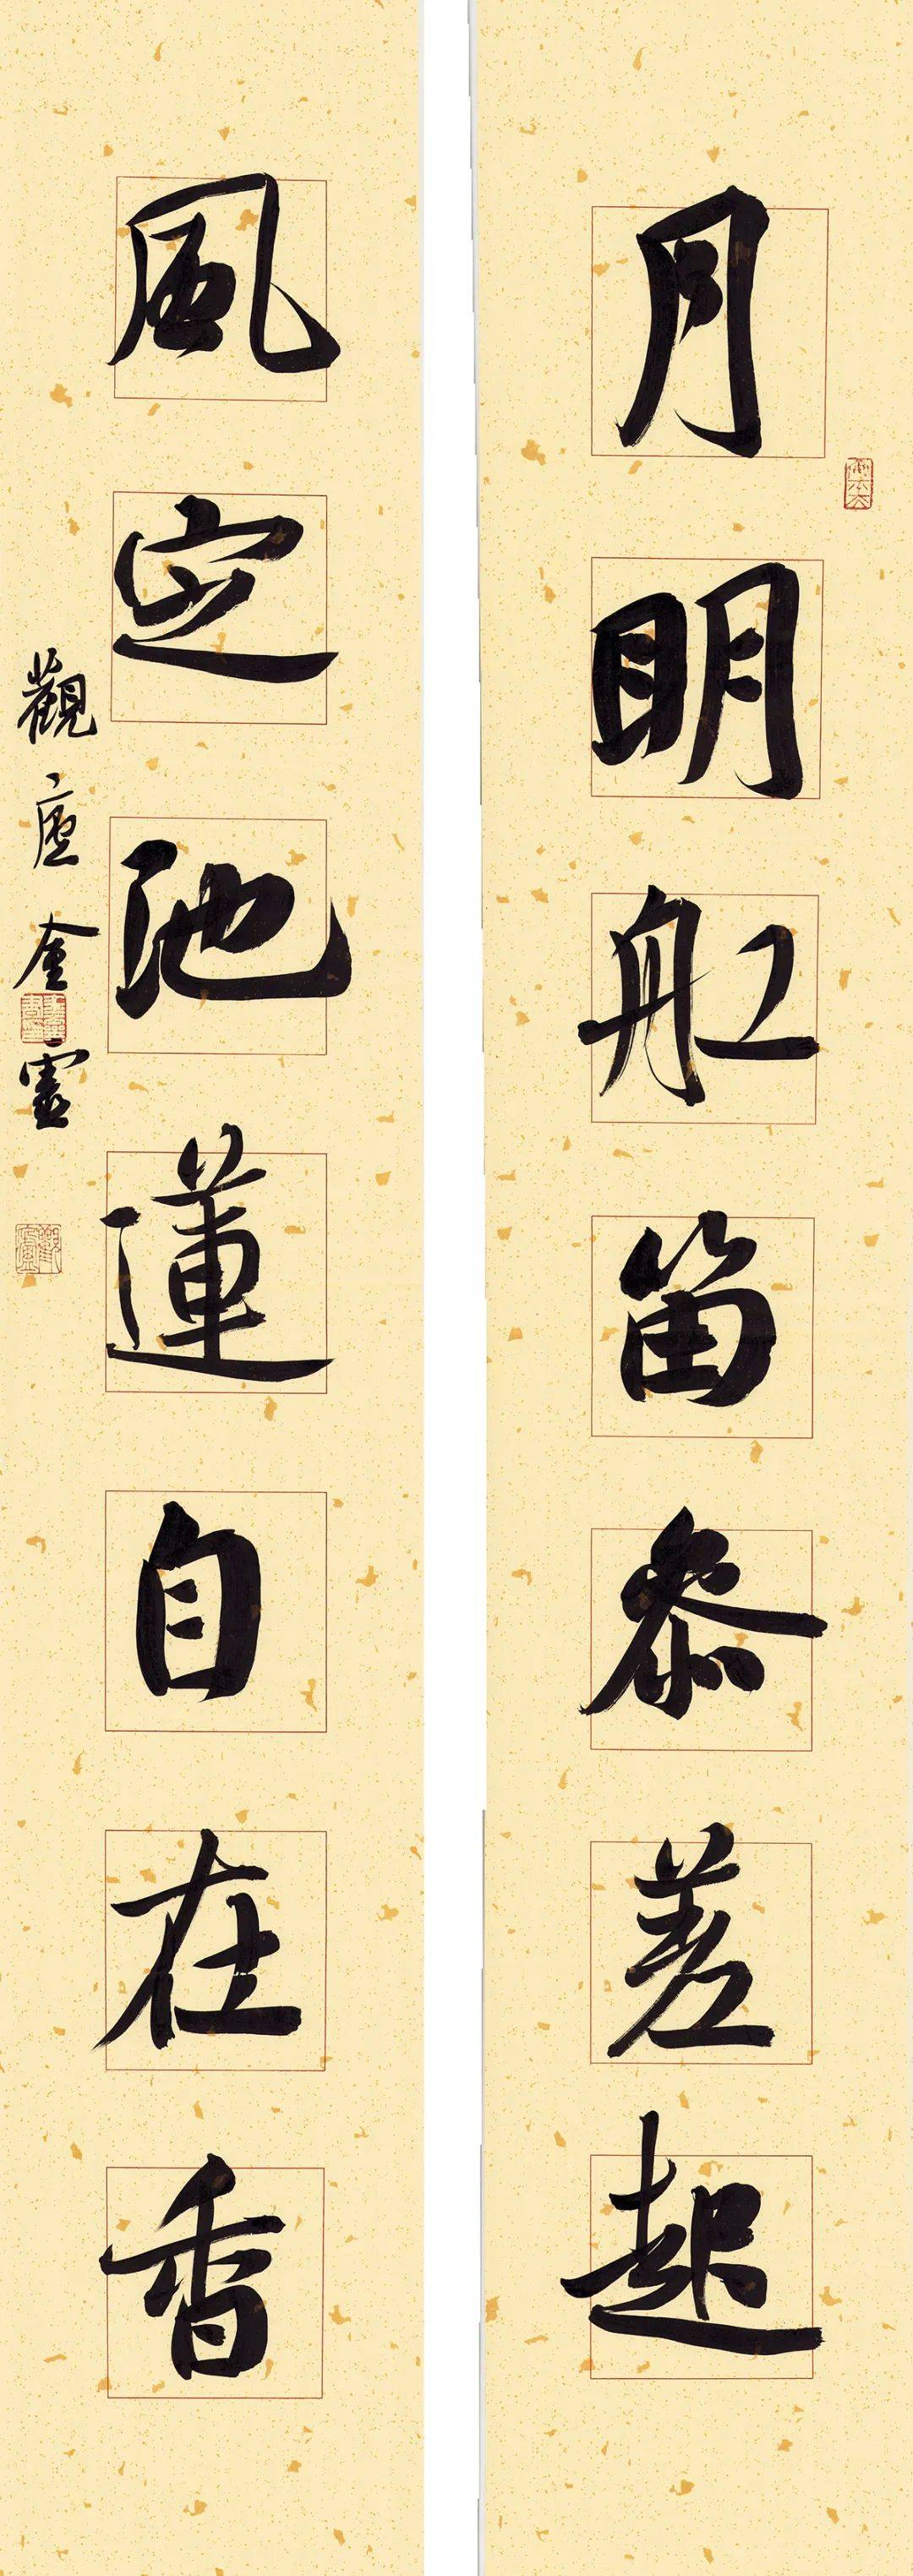 月明舡笛參差起
風定池蓮自在香
觀廬金